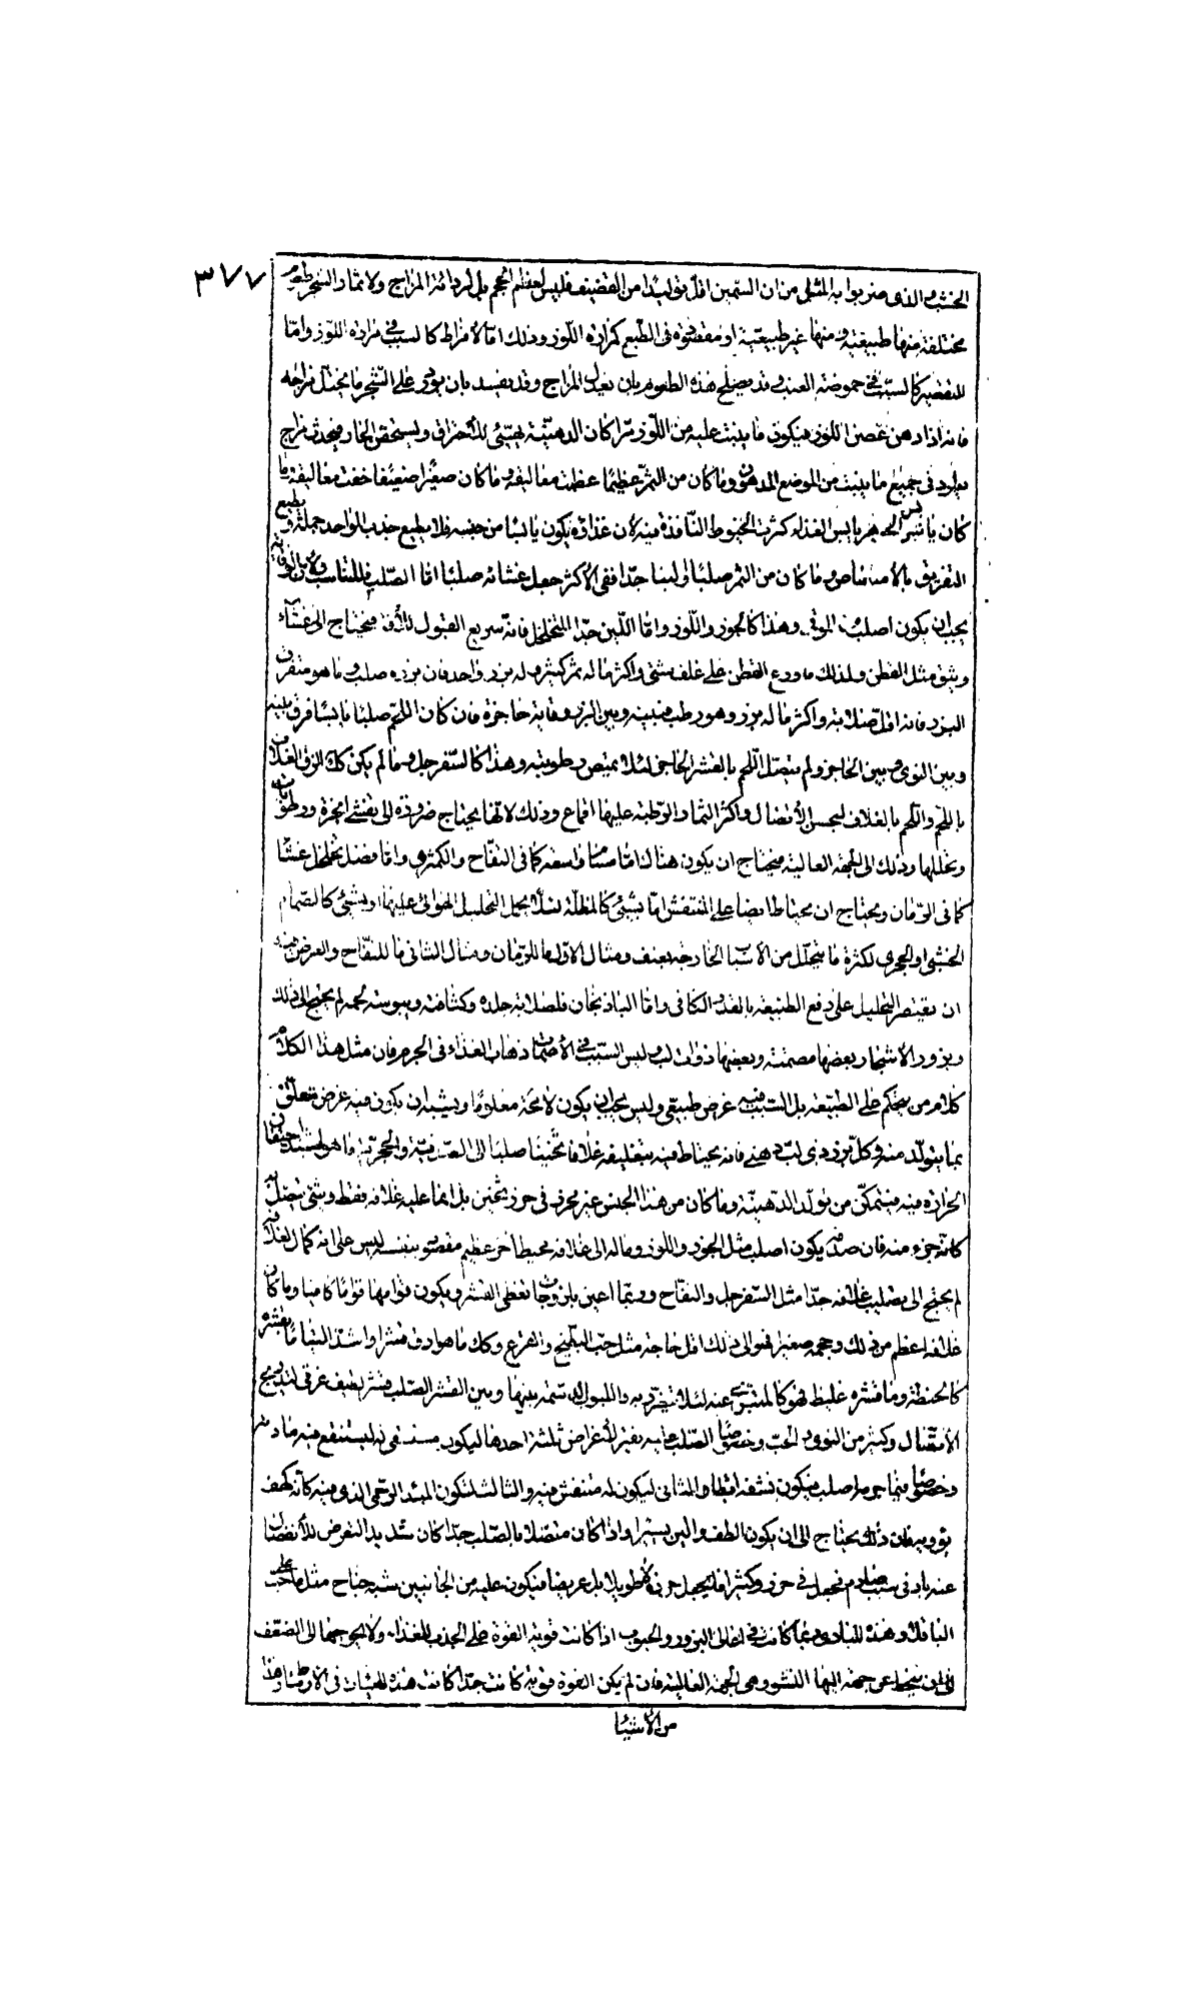 ٣٧٧
الخشب الذى ضربوا به المثل من ان السمين اقل توليدا من القضيف فليس لعظم الحجم بل لرداءة المزاج ولاثمار الشجر طعوم
مختلفة منها طبيعية ومنها غير طبيعية او مقصورة فى الطبع كمرارة اللوز وذلك اما لافراط كالسبب فى مرارة اللوز واما
لتقصير كالسبب فى حموضة العنب وقد يصلح هذه الطعوم بان يعدل المزاج وقد يفسد بان يورد على الشجر ما يختل مزاجه
فانه اذا دهن غصن اللوز فيكون ما ينبت عليه من اللوز مرا كان الدهنية تهيئ للاحتراق ويستحقن الحار فيحدث مزاج
يولد فى جميع ما ينبت من الموضع المدهون وما كان من الثمر عظيما عظمت معاليقه وما كان صغيرا ضعيفا خفت معاليقه وما
كان يابس الجوهر يابس الغذاء كثرت الخيوط النافذة فيه لان غذاءه يكون يابسا من جنسه فلا يطيع جذب الواحد جملة ويطيع
التفريق بالامتصاص وما كان من الثمر صلبا او لينا جدا ففى الاكثر جعل غشائه صلبا اما الصلب فللتناسب ولان الوقاية
يجب ان يكون اصلب من الموقى وهذا كالجوز واللوز واما اللين جدا المتخلخل فانه سريع القبول للآفة فيحتاج الى غشاء
وثيق مثل القطن ولذلك ما ودع القطن على غلف شتى واكثر ما له ثمر كثير وله بزر واحد فان بزره صلب وما هو متفرق
البزر فانه اقل صلابة واكثر ما له بزر وهو رطب فبينه وبين البزر وقاية حاجزة فان كان اللحم صلبا يابسا فرق بينه
وبين النوى وبين الحاجز ولم يتصل اللحم بالقشر الحاجز لئلا يمتص رطوبته وهذا كالسفرجل وما لم يكن كك الزق الغلاف
باللحم واللحم بالغلاف ليحسن الاتصال واكثر الثمار الرطبة عليها اقماع وذلك لانها يحتاج ضرورة الى تفشى ابخرة ورطوبات
وتحللها وذلك الى الجهة العالية فيحتاج ان يكون هناك اما مسام واسعة كما فى التفاح والكمثرى واما فضل تخلخل غشاء
كما فى الرمان ويحتاج ان يحتاط ايضا على المتنفس اما بشئ كالمظلة لئلا يحيل التحليل الهوائى عليها او بشئ كالصمام
الخشبى او الحجرى لكثرة ما يتحلل من الاسباب الخارجة بعنف ومثال الاول ما للرمان ومثال الثانى ما للتفاح والغرض منه
ان يقتصر التحليل على دفع الطبيعة بالقدر الكافى واما الباذنجان فلصلابة جلده وكثافته ويبوسة لحمه لم يحتج الى ذلك
وبزور الاشجار بعضها مصمتة وبعضها ذوات لب وليس السبب فى الاصمات ذهاب الغذاء فى الجرم فان مثل هذا الكلام
كلام من يتحكم على الطبيعة بل السبب فيه غرض طبيعى وليس يجب ان يكون لا محة معلوما ويشبه ان يكون فيه غرض يتعلق
بما يتولد منه وكل بزر ذى لب دهنى فانه يحتاط فيه بتغليفه غلافا ثخينا صلبا الى الصدفية والحجرية ما هو لشدة احتقان
الحرارة فيه فيتمكن من تولد الدهنية وما كان من هذا الجنس غير محرز فى حرز ثخين بل انما عليه غلافه فقط وشئ يتصل به
كانه جزء منه فان صدفه يكون اصلب مثل الجوز واللوز وماله الى غلافه محيط آخر عظيم مقصود بنفسه ليس على انه كمال لغلافه
لم يحتج الى تصليب غلافه جدا مثل السفرجل والتفاح وربما اعين بلزوجات تغطى القشر ويكون قوامها قواما كافيا وما كان
غلافه اعظم من ذلك وحجمه صغير فهو الى ذلك اقل حاجة مثل حب البطيخ والقرع وكك ما هو ارق قشرا واشد التياما بقشره
كالحنطة وما قشره غليظ فهو كالمتبرئ عنه لئلا يتضرر به واللبوب الدسمة بينها وبين القشر الصلب قشر لطيف عرقى لتدريج
الاتصال وكثير من النوى والحب وخصوصا الصلب جانبه نقير لاغراض ثلثة احدها ليكون مستقى له ليستنقع فيه مادته
وخصوصا فيما جرمه صلب فيكون نشفه ابطأ والثانى ليكون له متنفس فيه والثالث لتكون المبدأ الروحى الذى فيه كانه كهف
يؤويه فان ذلك يحتاج الى ان يكون الطف والين يسيرا واذا كان متصلا بالصلب جدا كان شديد التعرض للانفصال
عنه بادنى سبب صادم فجعل فى حرز وكثيرا ما يجعل حرزه لا طويلا بل عريضا فيكون عليه من الجانبين شبه جناح مثل ما على حب
الباقلى وهذه المبادى ربما كانت فى اعلى البزور والحبوب اذا كانت قوية القوة على الجذب للغذاء ولا يحوجها الى الضعف
الى ان ينحط عن جهة اليها النشو وهى الجهة العالية فان لم يكن القوة قوية كانت جدا كانت هذه المبادى فى الاوساط وهذا
من الاشياء